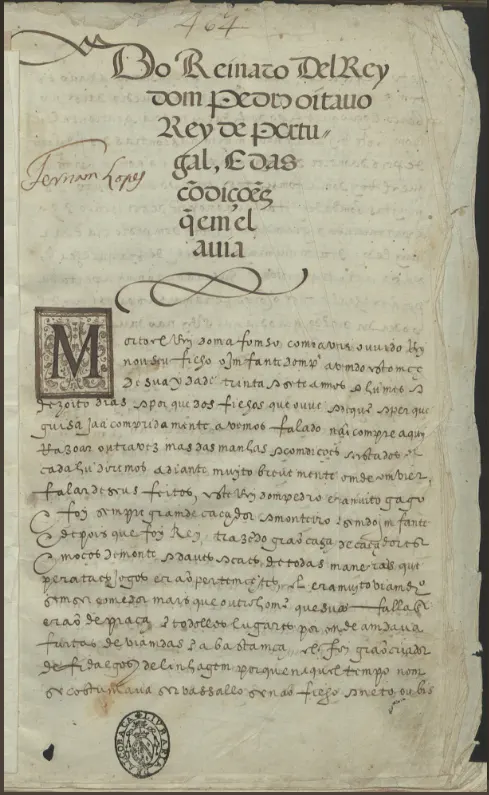 464
Do Reinado Del Rey
dom Pedro oitavo
Rey de Portu=
gal, E das
cõdiçoẽs
q̃ em el
avia
Fernan Lopes
Morto el Rey dom afonso, como avees ouvido Rey
nou seu filho o Jnfante dom p.º avendo estomçe
de sua ydade trinta & sete annos & hu mes &
dezoito dias, & por que dos filhos que ouve & de quẽ & per que
guisa jaa compridamente avemos falado nõ compre aqui
Razoar outra vez mas das manhas & condições & estados
cada hũ diremos adiante muyto brevemente onde comvier
falar de seus feitos, este Rey dom pedro era muito gago
& foy sempre grande caçador & monteiro sendo imfante
& depois que foy Rey, trazẽdo grão casa de caçadores
& moços de monte & daves & cães, de todas maneiras que
pera taes jogos erão pertençẽtes, el era muito viandro
sem ser comedor mais que outro home que suas sallas
erão de praça e todollos lugares por onde andava
fartas de viandas em abastança, el foy grão criador
de fidalgos de linhagem porque naquel tempo nom
se costumava ser vassallo senão filho & neto, ou bis
LIVRARIA